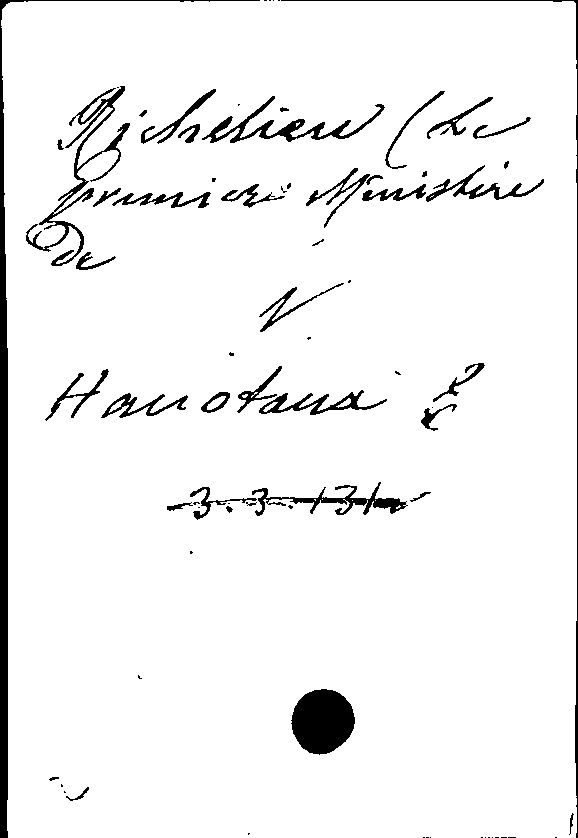 Richelieu (Le
premier Ministère
De
V
Hanotaux
3.3.131